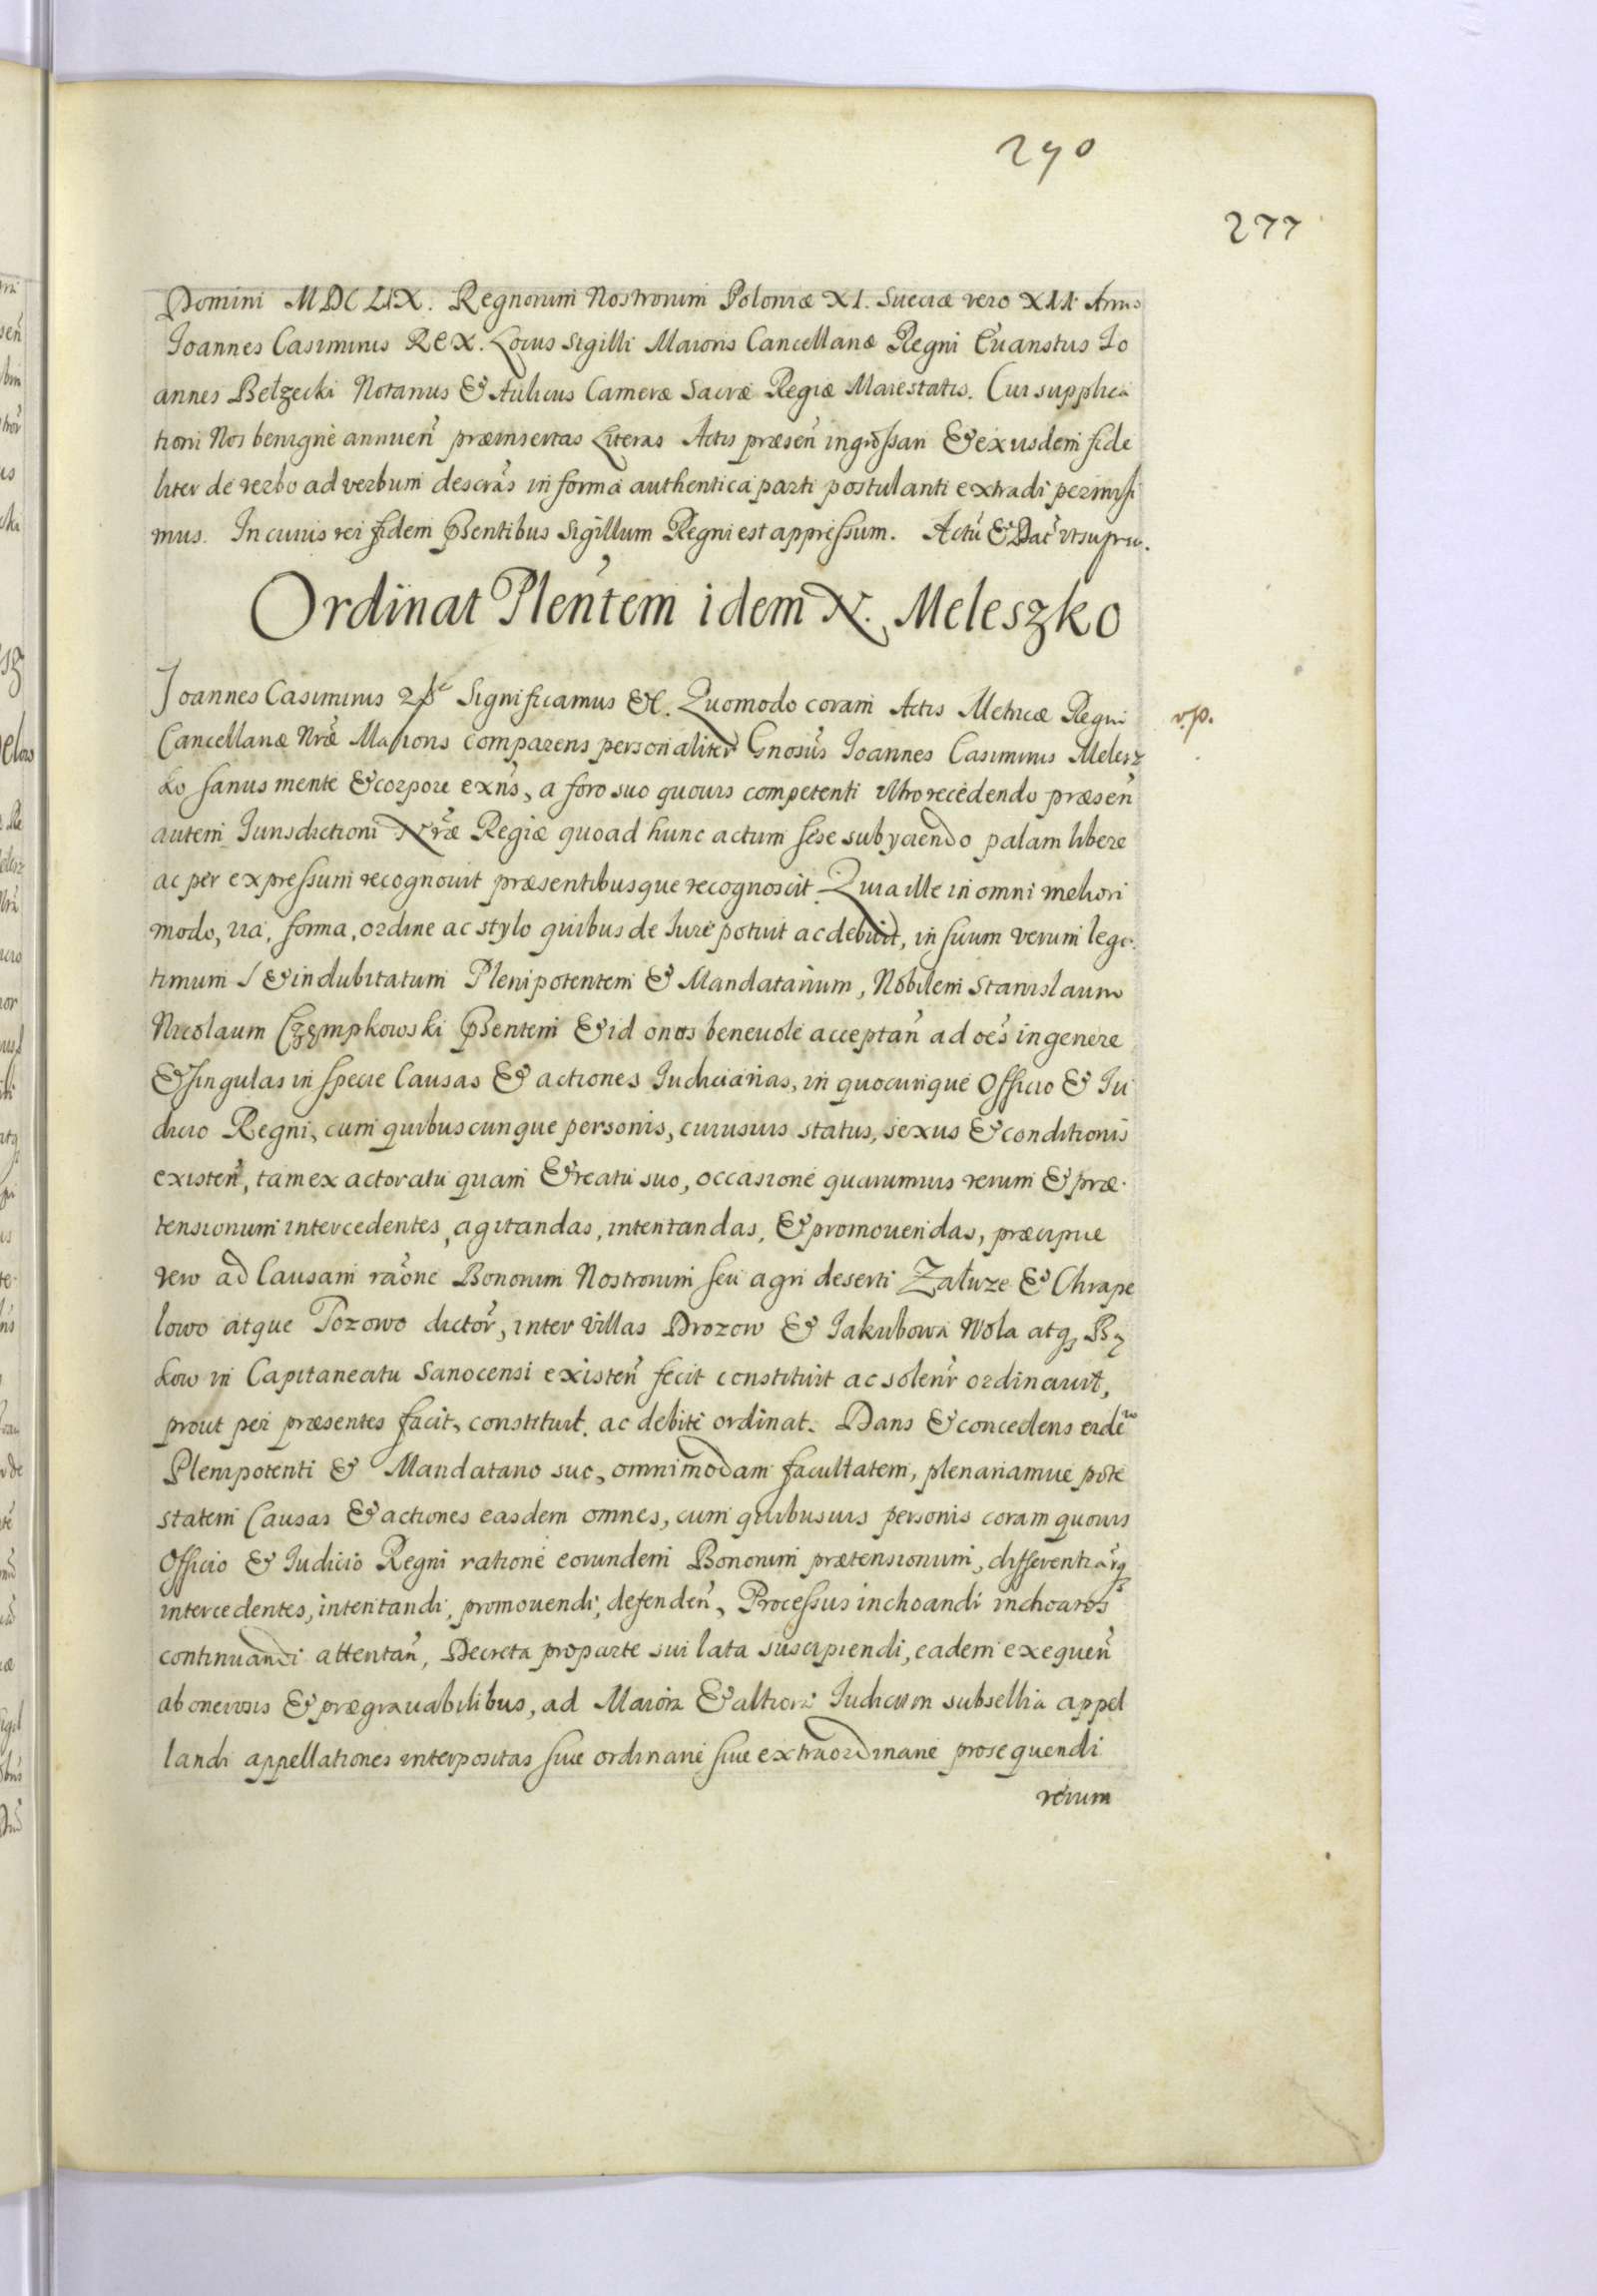 290
277
Domini MDCLIX. Regnorum Nostrorum Poloniæ XI. Sueciæ vero XII Anno
Joannes Casimirus REX. Locus Sigilli Maioris Cancellariæ Regni Euaristus Jo
annes Bełzecki Notarius & Aulicus Cameræ Sacræ Regiæ Maiestatis. Cui supplica
tioni Nos benigne annuen̄ præinsertas Literas Actis præsen̄ ingrossari & exijsdem fide
liter de verbo ad verbum descrās in forma authentica parti postulanti extradi permisi
mus. In cuius rei fidem p̄sentibus Sigillum Regni est appressum. Actū & Dat̄ ut supra.
Ordinat Pleñtem idem N. Meleszko
Joannes Casimirus Significamus &c. Quomodo coram Actis Metricæ Regni
v.p.
Cancellariæ Nræ Maioris comparens personaliter Gnosūs Joannes Casimirus Melesz
ko sanus mente & corpore exñs, a foro suo quouis competenti Ultro recedendo præsen̄
autem Jurisdictioni Nræ Regiæ quoad hunc actum sese subyciendo palam libere
ac per expressum recognouit præsentibusque recognoscit. Quia ille in omni meliori
modo, uia, forma, ordine ac stylo quibus de Jure potuit ac debuit, in suum verum legi
timum & indubitatum Plenipotentem & Mandatarium, Nobilem Stanislaum
Nicolaum Czempkowski p̄sentem & id onus beneuole acceptan̄ ad oēs in genere
& singulas in specie Causas & actiones Judiciarias, in quocunque Officio & Ju
dicio Regni, cum quibuscunque personis, cuiusuis status, sexus & conditionis
existen̄, tam ex actoratu quam & reatu suo, occasione quarumuis rerum & præ
tensionum intercedentes, agitandas, intentandas, & promouendas, præcipue
vero ad Causam raōne Bonorum Nostrorum seu agri deserti Załuze & Chrape
lowo atque Tozowo dictor̄, inter Villas Drozow & Jakubowa Wola atq₃ By
kow in Capitaneatu Sanocensi existen̄ fecit constituit ac solen̄r ordinauit,
prout per præsentes facit, constituit, ac debite ordinat. Dans & concedens eidem
Plenipotenti & Mandatario suo, omnimodam facultatem, plenariamue pote
statem Causas & actiones easdem omnes, cum quibusuis personis coram quouis
Officio & Judicio Regni ratione eorundem Bonorum prætensionum, differentiarq₃
intercedentes, intentandi, promouendi, defenden̄, Processus inchoandi inchoatos
continuandi attentan̄, Decreta pro parte sui lata suscipiendi, eadem exequen̄
ab onerosis & prægrauabilibus, ad Maiora & altiora Judicium subsellia appel
landi appellationes interpositas siue ordinarie siue extraordinarie prosequendi
rerum